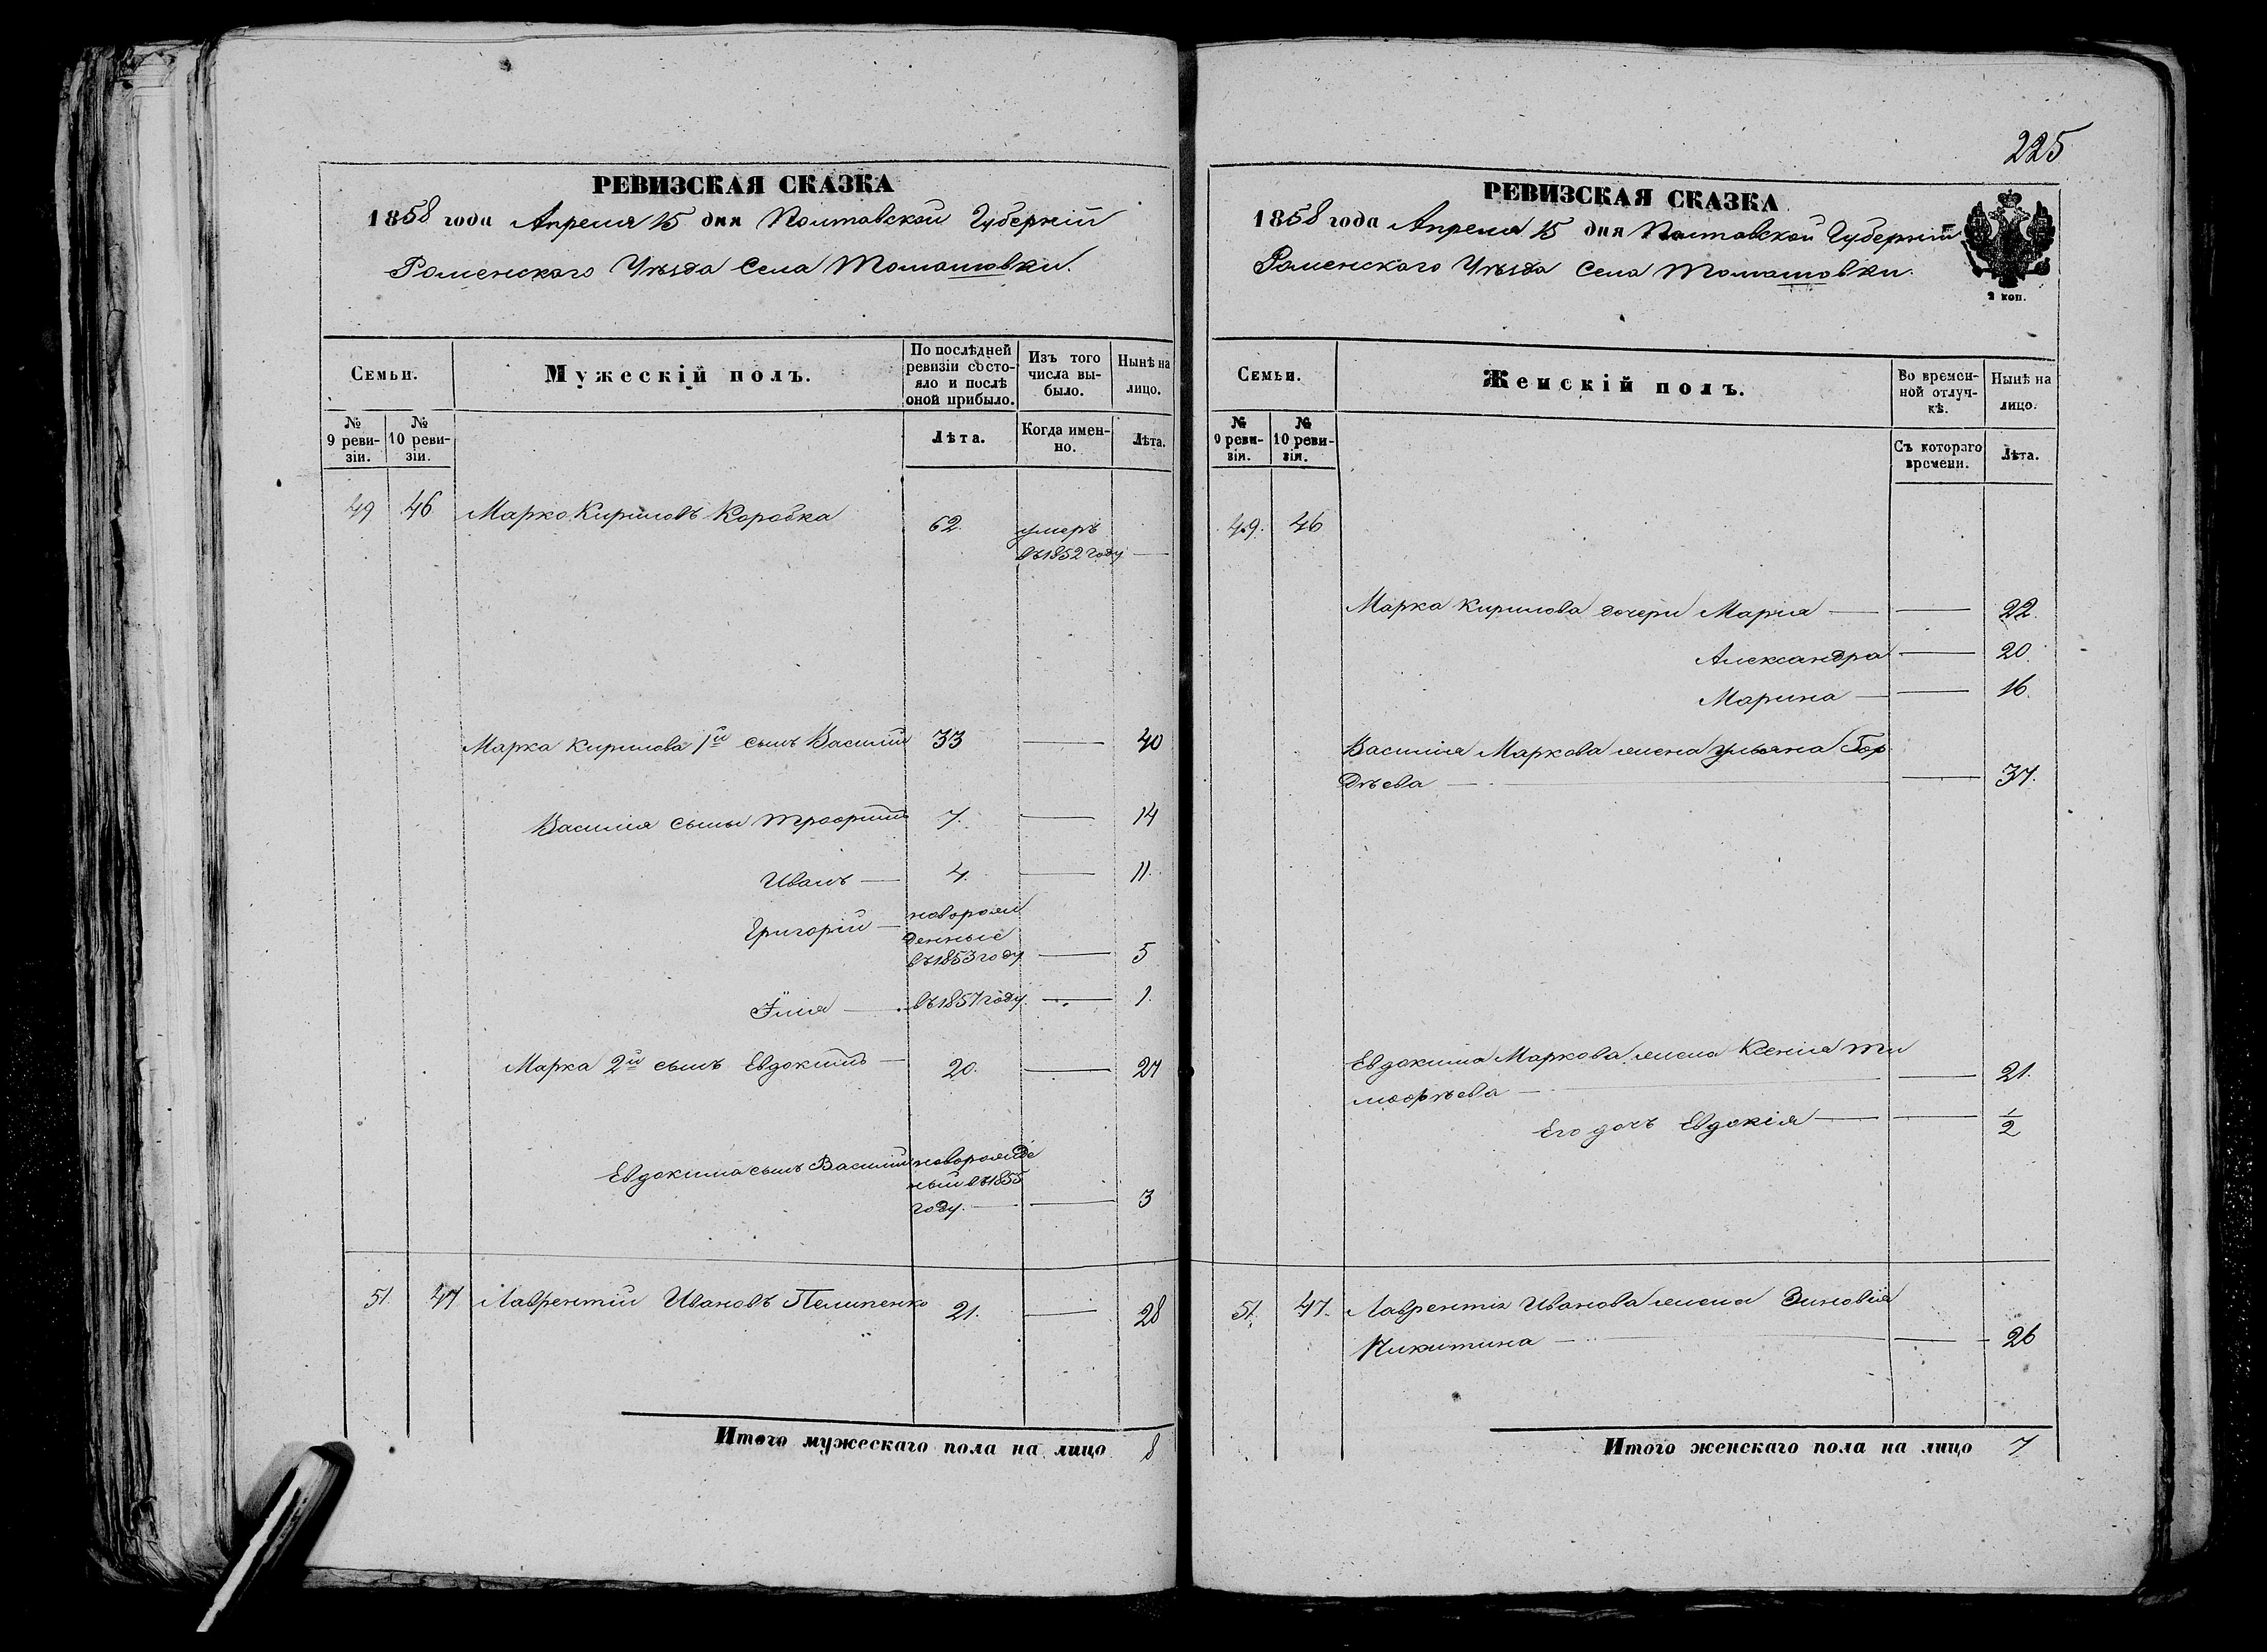 РЕВИЗСКАЯ СКАЗКА
1858 года Апреля 15 дня Полтавской Губерніи
Роменского Уѣзда Села Томашовки.
Семьи.
Мужескій полъ.
По послѣдней ревизіи состояло и послѣ оной прибыло.
Изъ того числа выбыло.
Нынѣ на лицо.
№ 9 ревизіи.
№ 10 ревизіи.
Лѣта.
Когда именно.
Лѣта.
49 46 Марко Кириловъ Коробка 62. умеръ
въ 1852 году —
Марка Кирилова 1й сынъ Василій 33 — 40
Василия сыны Трофимъ 7. — 14
Иванъ — 4. — 11.
Григорій — новорож
денные
въ 1853 году — 5
Илія — въ 1857 году. — 1.
Марка 2й сынъ Евдокимъ — 20. — 27
Евдокима сынъ Василий новорожде
ный въ 1855
году. — — 3
51. 47 Лаврентій Ивановъ Пелипенко 21. — 28
Итого мужескаго пола на лицо 8
225
РЕВИЗСКАЯ СКАЗКА
1858 года Апреля 15 дня Полтавской Губерніи
Роменского Уѣзда Села Томашовки.
2 коп.
Семьи.
Женскій полъ.
Во временной отлучкѣ.
Нынѣ на лицо.
№ 9 ревизіи.
№ 10 ревизіи.
Съ котораго времени.
Лѣта.
49. 46
Марка Кирилова дочери Мария — — 22.
Александра — 20.
Марина — — 16.
Василия Маркова жена Ульяна Гор
дѣева — — 37.
Евдокима Маркова жена Ксенія Ти
мофѣева — — 21.
Его дочь Евдокія — — 1/2
51. 47. Лаврентія Иванова жена Зиновія
Никитина — — 26
Итого женскаго пола на лицо 7